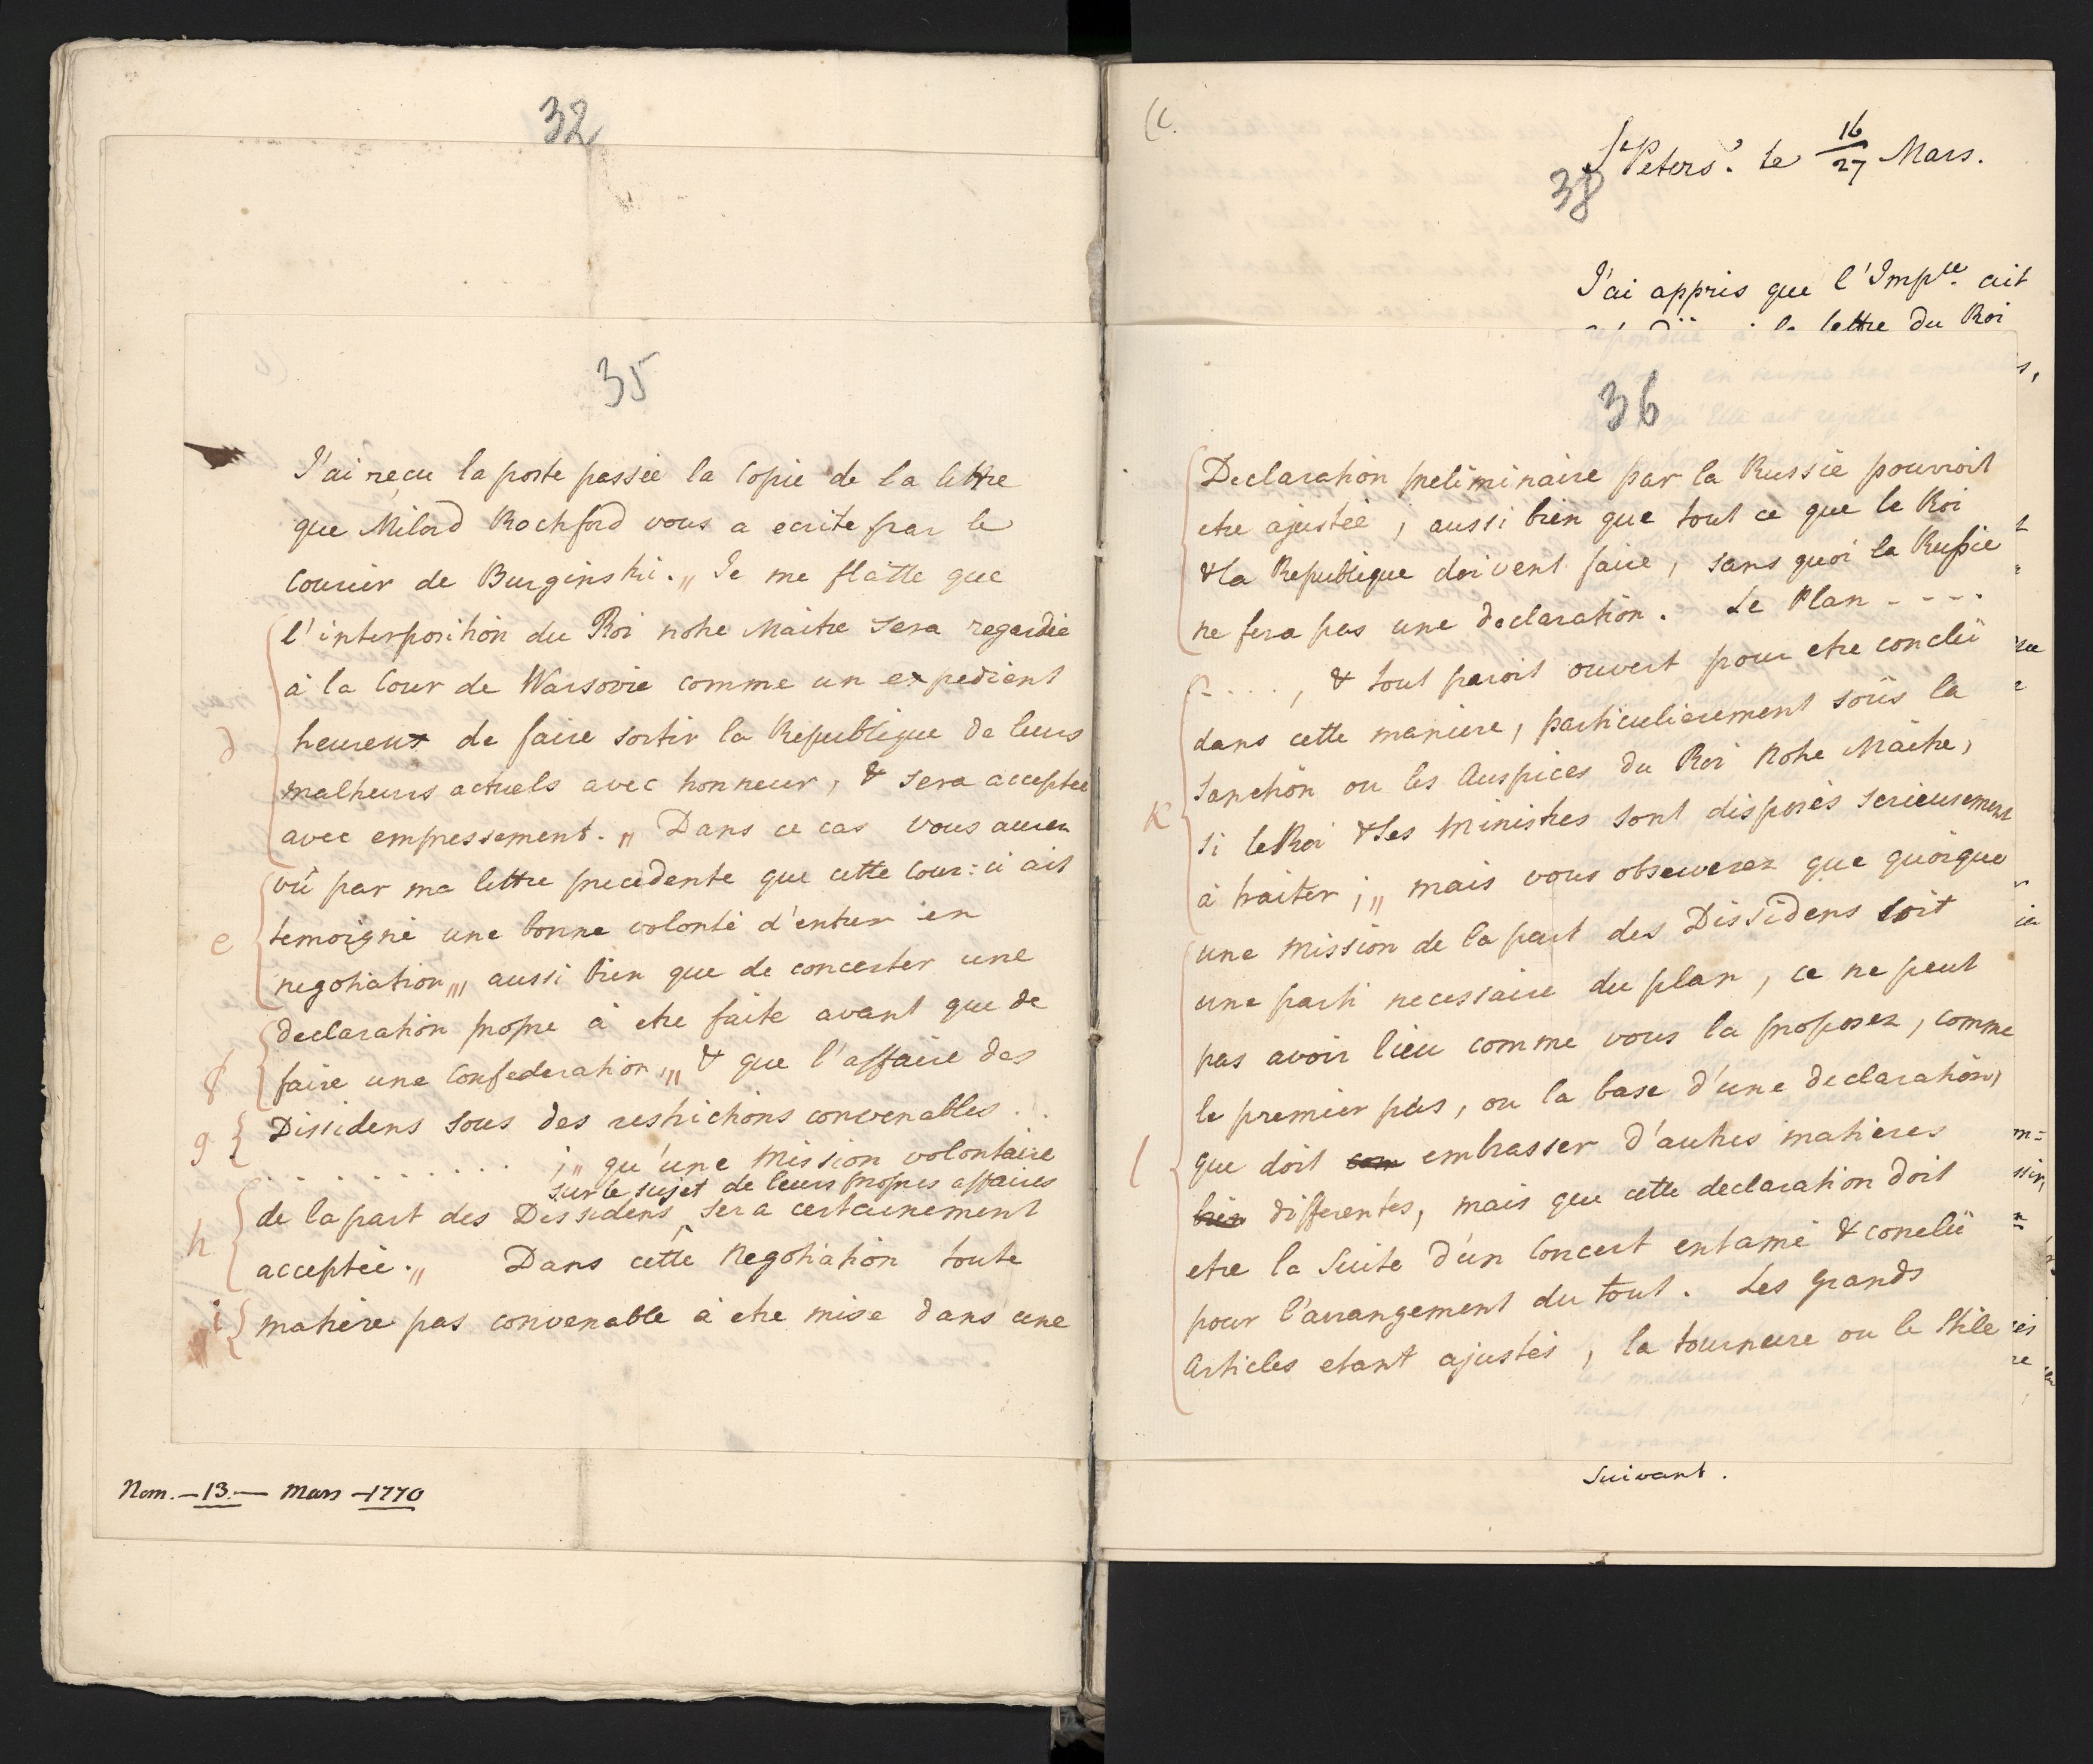 32
35
J'ai reçu la poste passée la Copie de la lettre
que Milord Rochford vous a ecrite par le
Courier de Burginski. „ Je me flatte que
l'interposition du Roi notre Maitre sera regardée
à la Cour de Warsovie comme un expedient
heureux de faire sortir la Republique de leurs
malheurs actuels avec honneur, & sera acceptée
avec empressement. „ Dans ce cas vous aurez
d
vû par ma lettre precedente que cette Cour=ci ait
temoigné une bonne volonté d'entrer en
negotiation „, aussi bien que de concerter une
e
declaration propre à etre faite avant que de
faire une Confederation, „ & que l'affaire des
f
Dissidens sous des restrictions convenables . .
g
. . . . . . . . . . ; „ qu'une Mission volontaire
sur le sujet de leurs propres affaires
de la part des Dissidens sera certainement
h
acceptée. „ Dans cette Negotiation toute
i
matiere pas convenable à etre mise dans une
Nom. — 13. — Mars — 1770
(c.
St Peters. le 16/27 Mars.
38
J'ai appris que l'Impce. ait
repondüe à la lettre du Roi
36
Declaration preliminaire par la Russie pourroit
etre ajustée, aussi bien que tout ce que le Roi
& la Republique doivent faire, sans quoi la Russie
ne fera pas une declaration. Le Plan - - - -
- . . . , & tout paroit ouvert pour etre conclü
dans cette maniere, particulierement soüs la
Sanction ou les Auspices du Roi Notre Maitre,
k
si le Roi & ses Ministres sont disposés serieusement
à traiter; „ mais vous observerez que quoique
une Mission de la part des Dissidens soit
une parti necessaire du plan, ce ne peut
pas avoir lieu comme vous la proposez, comme
le premier pas, ou la base d'une declaration,
l
que doit com embrasser d'autres matieres
bien differentes, mais que cette declaration doit
etre la Suite d'un Concert entamé & conclü
pour l'arrangement du tout. Les grands
Articles etant ajustés, la tournure ou le Stile
suivant.